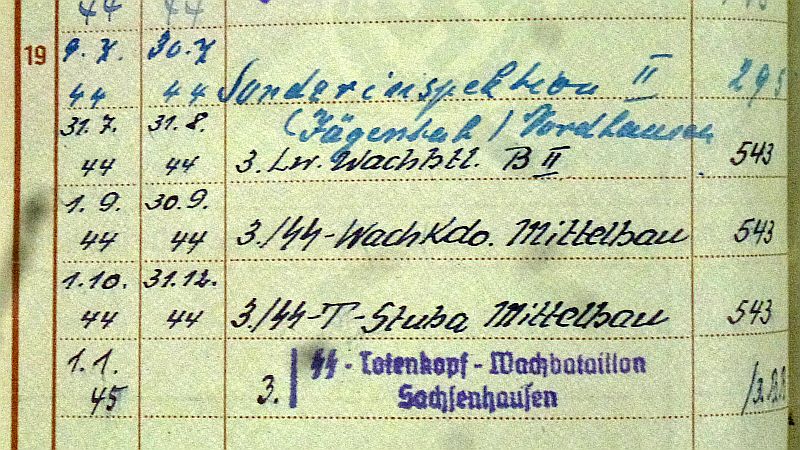 44 44
19 9.7. 30.7
44 44 Sonderinspektion II 295
31.7. 31.8. (Jägerstab) Nordhausen
44 44 3. Lw. Wachbtl. B II 543
1.9. 30.9.
44 44 3./SS-WachKdo. Mittelbau 543
1.10. 31.12.
44 44 3./SS-T-Stuba Mittelbau 543
1.1. SS-Totenkopf-Wachbataillon
45 3. Sachsenhausen